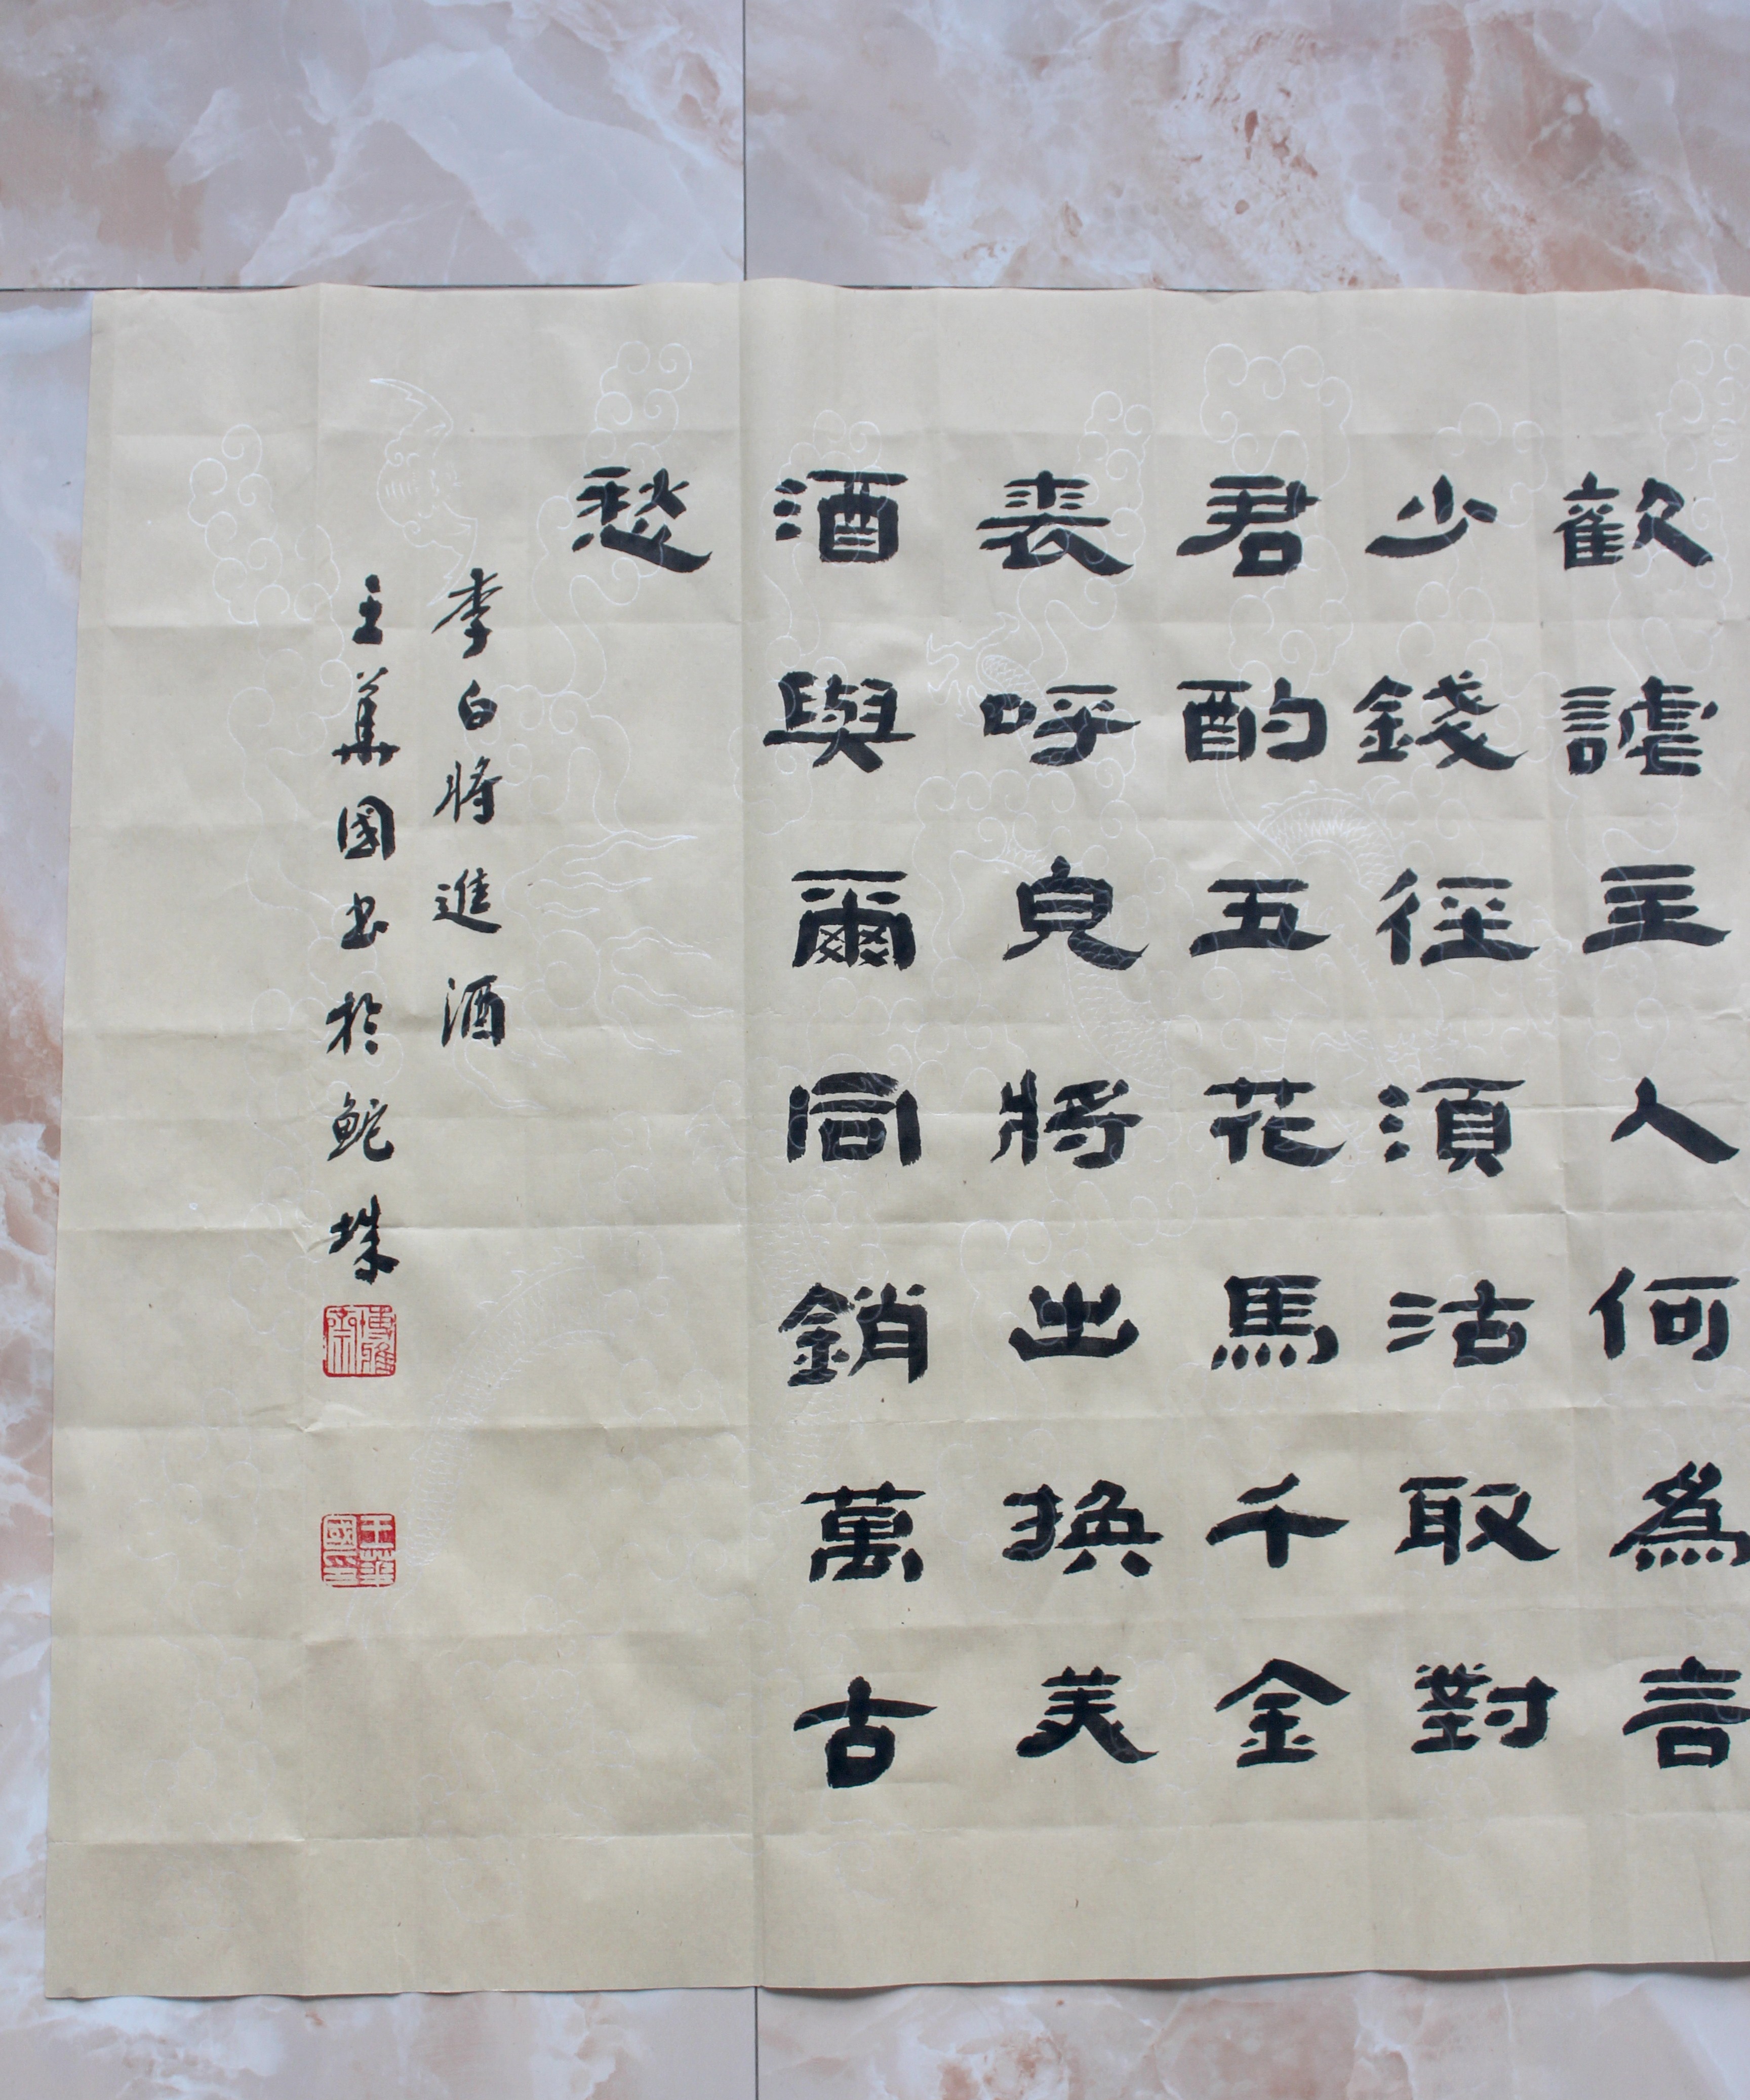 歡謔主人何爲言
少錢徑湏沽取對
君酌五花馬千金
裘呼兒將出換美
酒與爾同銷萬古
愁
李白將進酒
王華國書於鮀城
王華國印